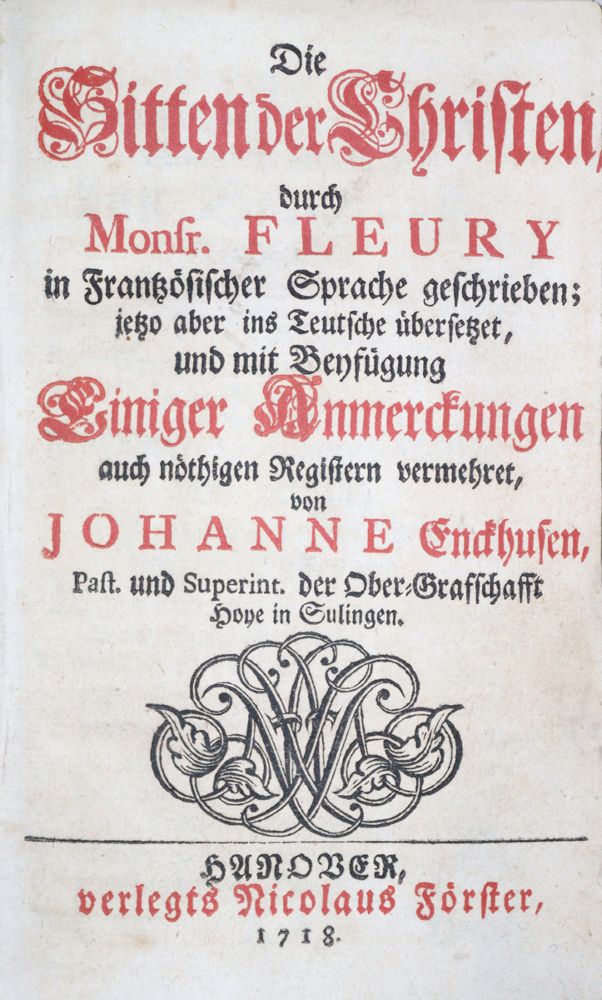 Die
Sitten der Christen,
durch
Monſr. FLEURY
in Frantzöſiſcher Sprache geſchrieben;
jetzo aber ins Teutſche überſetzet,
und mit Beyfügung
Einiger Anmerckungen
auch nöthigen Regiſtern vermehret,
von
JOHANNE Enckhuſen,
Paſt. und Superint. der Ober-Grafſchafft
Hoye in Sulingen.
HANOVER,
verlegts Nicolaus Förſter,
1718.